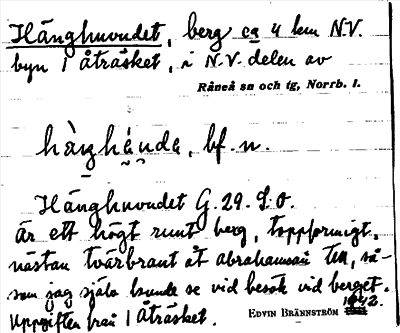 Hänghuvudet, berg ca 4 km N.V.
byn 1 Åträsket, i N.V. delen av
Råneå sn och tg, Norrb. l.
hàŋghʉ́vdə, bf. n.
Hänghuvudet G. 29. S.O.
är ett högt runt berg, toppformigt,
nästan tvärbrant åt, så-
som jag själv kunde se vid besök vid berget.
Uppgiften från 1 Åträsket.
EDVIN BRÄNNSTRÖM 1942.